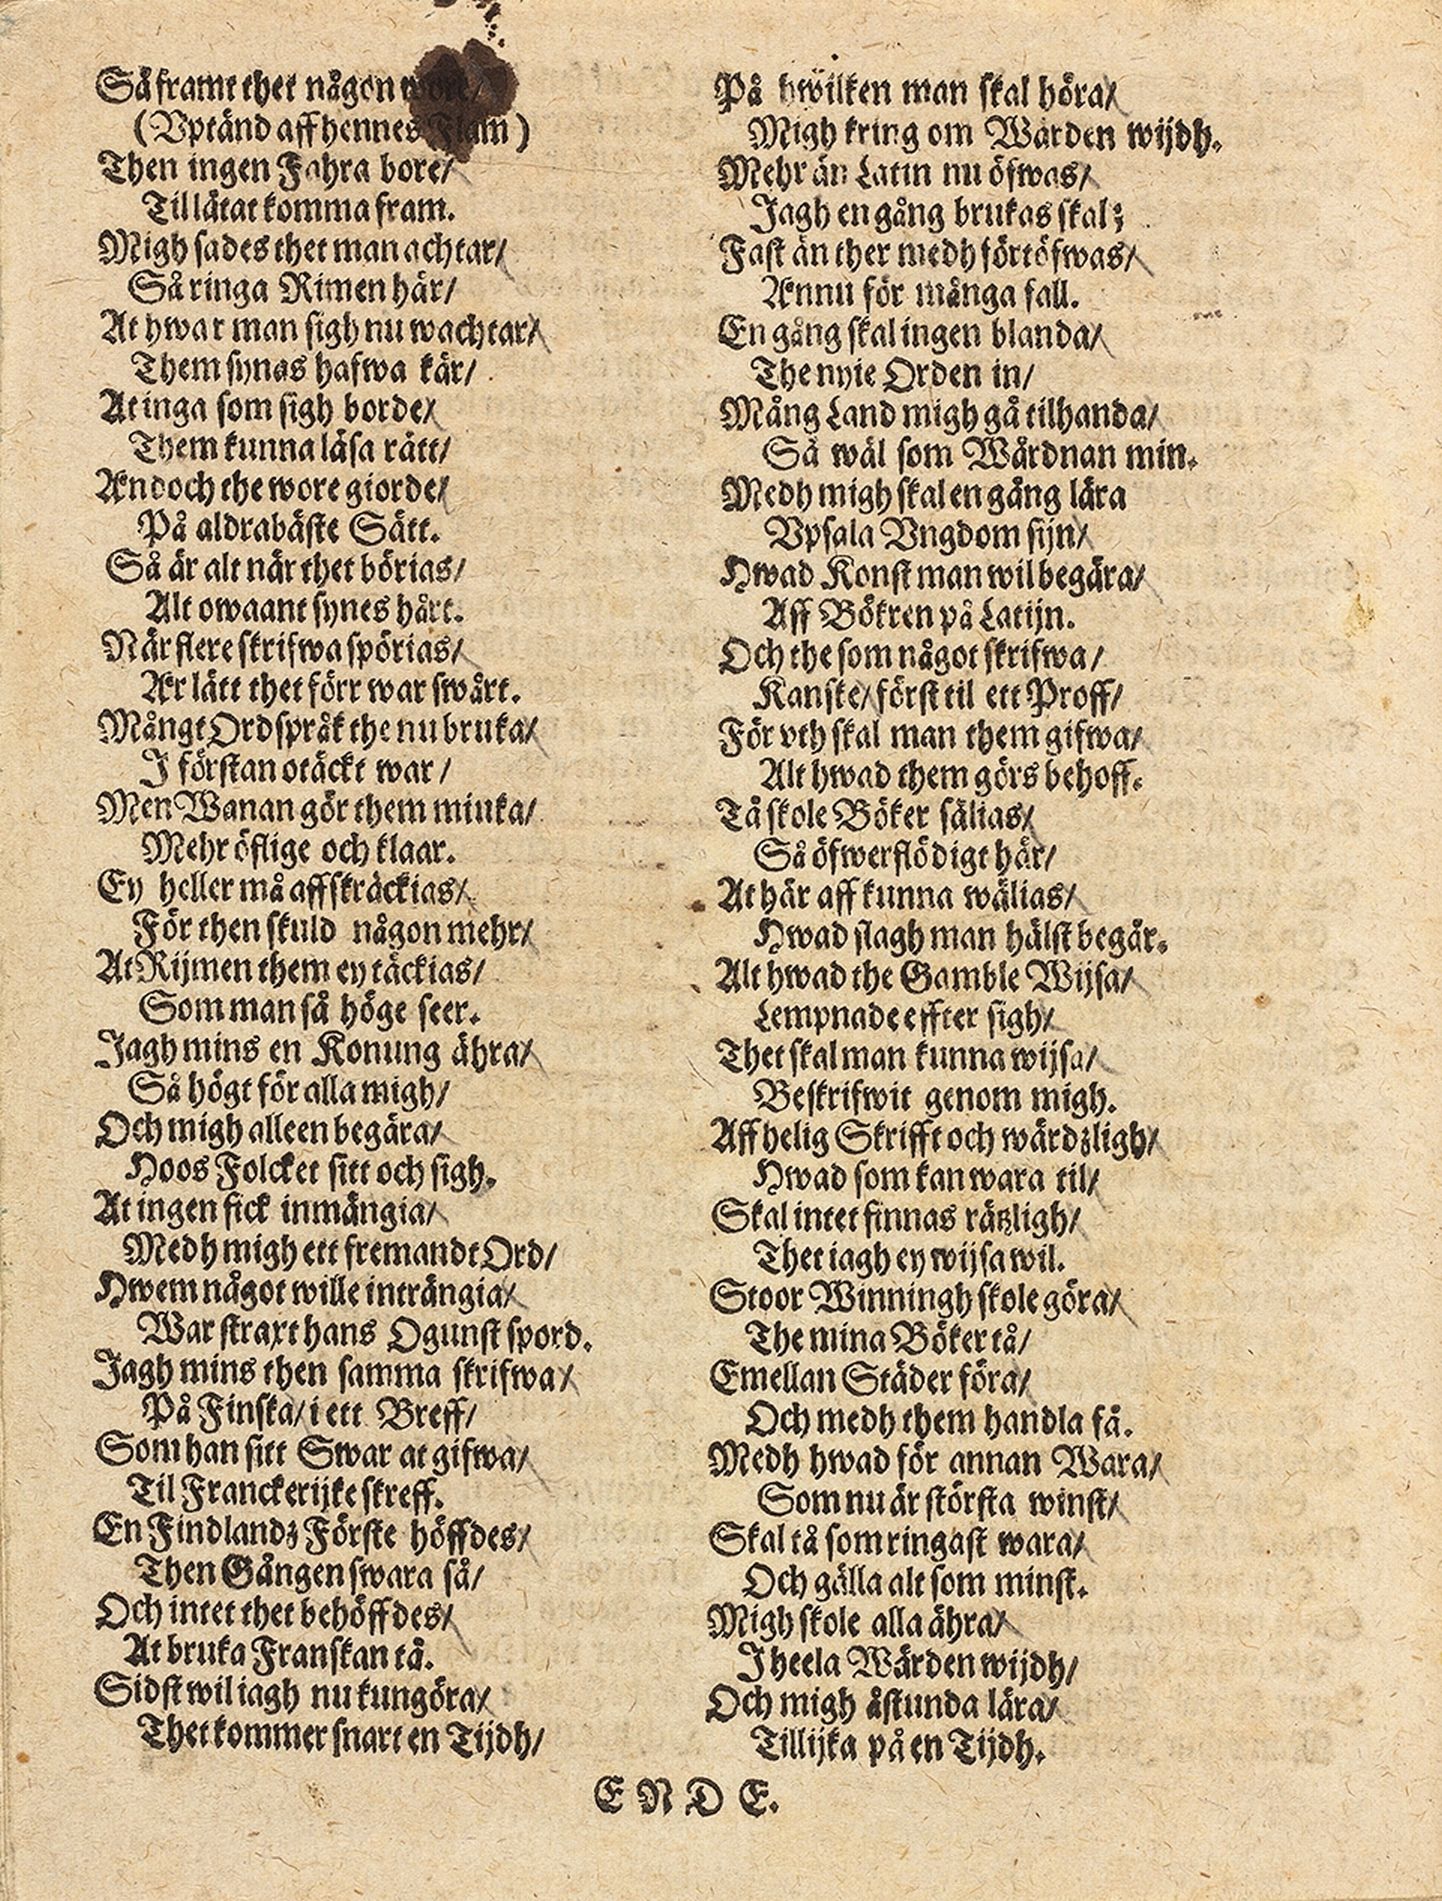 Så framt thet någon wore/
(Vptänd aff hennes Flam)
Then ingen Fahra bore/
Til låtat komma fram.
Migh sades thet man achtar/
Så ringa Rimen här/
At hwar man sigh nu wachtar/
Them synas hafwa kär/
At inga som sigh borde/
Them kunna läsa rätt/
Ændoch the wore giorde/
På aldrabäste Sätt.
Så är alt när thet börias/
Alt owaant synes hårt.
När flere skrifwa spörias/
Ær lätt thet förr war swårt.
Mångt Ordspråk the nu bruka/
I förstan otäckt war/
Men Wanan gör them miuka/
Mehr öflige och klaar.
Ey heller må affskräckias/
För then skuld någon mehr/
At Rijmen them ey täckias/
Som man så höge seer.
Jagh mins en Konung ähra/
Så högt för alla migh/
Och migh alleen begära/
Hoos Folcket sitt och sigh.
At ingen fick inmängia/
Medh migh ett fremandt Ord/
Hwem något wille inträngia/
War straxt hans Ogunst spord.
Jagh mins then samma skrifwa/
På Finska/ i ett Breff/
Som han sitt Swar at gifwa/
Til Franckerijke skreff.
En Findlandz Förste höffdes/
Then Gången swara så/
Och intet thet behöffdes/
At bruka Franskan tå.
Sidst wil iagh nu kungöra/
Thet kommer snart en Tijdh/
På hwilken man skal höra/
Migh kring om Wärden wijdh.
Mehr än Latin nu öfwas/
Jagh en gång brukas skal;
Fast än ther medh förtöfwas/
Ænnu för många fall.
En gång skal ingen blanda/
The nyie Orden in/
Mång Land migh gå tilhanda/
Så wäl som Wårdnan min.
Medh migh skal en gång lära
Vpsala Vngdom sijn/
Hwad Konst man wil begära/
Aff Bökren på Latijn.
Och the som något skrifwa/
Kanske/ först til ett Proff/
För vth skal man them gifwa/
Alt hwad them görs behoff.
Tå skole Böker sälias/
Så öfwerflödigt här/
At här aff kunna wälias/
Hwad slagh man hälst begär.
Alt hwad the Gamble Wijsa/
Lempnade effter sigh/
Thet skal man kunna wijsa/
Beskrifwit genom migh.
Aff helig Skrifft och wärdzligh/
Hwad som kan wara til/
Skal intet finnas rätzligh/
Thet iagh ey wijsa wil.
Stoor Winningh skole göra/
The mina Böker tå/
Emellan Städer föra/
Och medh them handla få.
Medh hwad för annan Wara/
Som nu är största winst/
Skal tå som ringast wara/
Och gälla alt som minst.
Migh skole alla ähra/
I heela Wärden wijdh/
Och migh åstunda lära/
Tillijka på en Tijdh.
ENDE.